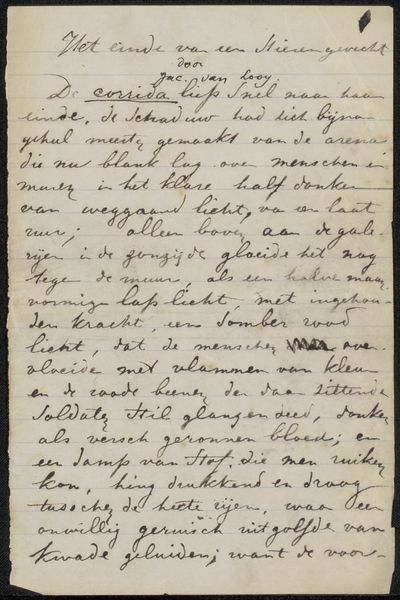 Het einde van een Stierengevecht
door
Jac. van Looy.
De corrida liep snel naar haar
einde, de schaduw had zich bijna
geheel meester gemaakt van de arena
die nu blank lag over menschen en
muren in het klare half donker
van weggaand licht, van een laat
uur; alleen boven aan de gale-
rijen in de zonzijde gloeide het nog
tegen de muur, als een halve maan
vormige lap licht, met ingehou-
den kracht, een somber rood
licht, dat de menschen over-
vloeide met vlammen van kleur
en de roode beenen der daar zittende
soldaten stil glanzen deed, donker
als versch geronnen bloed; en
een damp van stof, die men ruiken
kon, hing drukkend en droog
tusschen de heete rijen, waar een
onwillig geruisch uitgolfde van
kwade geluiden; want de voor-